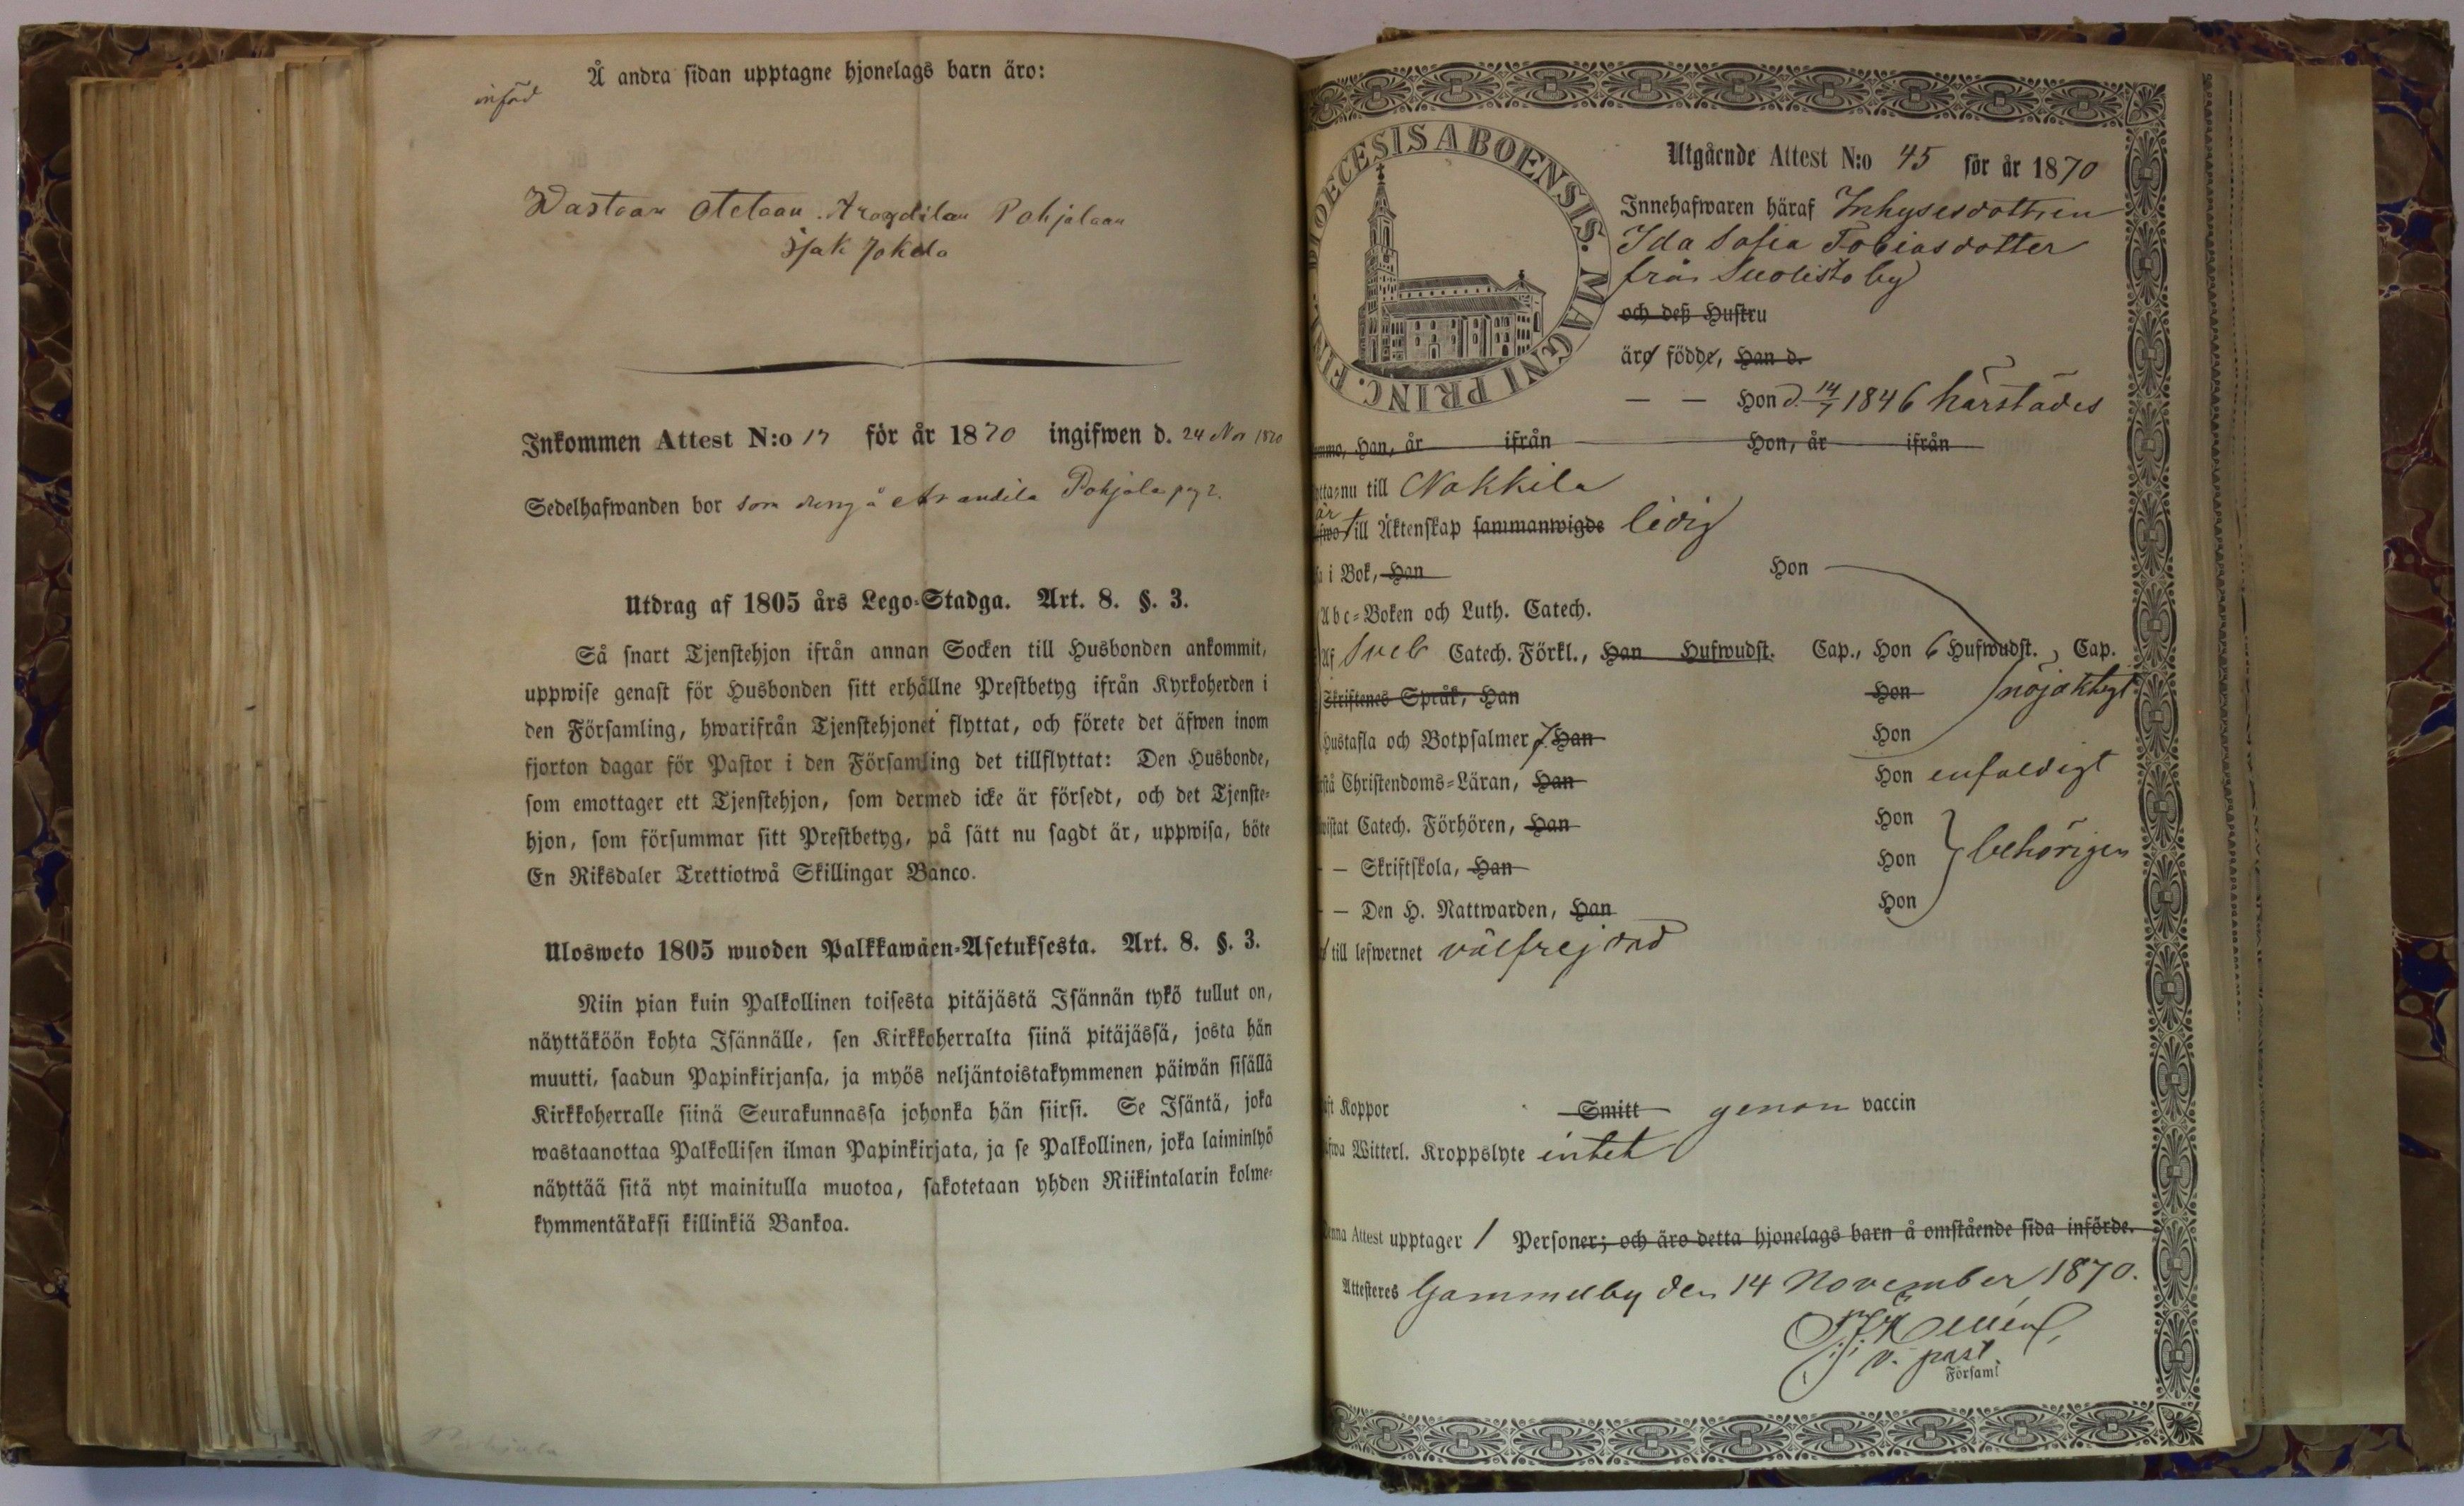 Å andra sidan upptagne hjonelags barn äro:
införd
Wastaan otetaan Arandilan Pohjalaan
Isak Jokela
Inkommen Attest N:o 17 för år 1870 ingifwen d. 24 Nov 1870
Sedelhafwanden bor som dreng å Arandila Pohjola pag 2.
Utdrag af 1805 års Lego-Stadga. Art. 8. §. 3.
Så snart Tjenstehjon ifrån annan Socken till Husbonden ankommit,
uppwise genast för Husbonden sitt erhållne Prestbetyg ifrån Kyrkoherden i
den Församling, hwarifrån Tjenstehjonet flyttat, och förete det äfwen inom
fjorton dagar för Pastor i den Församling det tillflyttat: Den Husbonde,
som emottager ett Tjenstehjon, som dermed icke är försedt, och det Tjenste-
hjon, som försummar sitt Prestbetyg, på sätt nu sagdt är, uppwisa, böte
En Riksdaler Trettiotwå Skillingar Banco.
Ulosweto 1805 wuoden Palkkawäen-Asetuksesta. Art. 8. §. 3.
Niin pian kuin Palkollinen toisesta pitäjästä Isännän tykö tullut on,
näyttäköön kohta Isännälle, sen Kirkkoherralta siinä pitäjässä, josta hän
muutti, saadun Papinkirjansa, ja myös neljäntoistakymmenen päiwän sisällä
Kirkkoherralle siinä Seurakunnassa johonka hän siirsi. Se Isäntä, joka
wastaanottaa Palkollisen ilman Papinkirjata, ja se Palkollinen, joka laiminlyö
näyttää sitä nyt mainitulla muotoa, sakotetaan yhden Riikintalarin kolme-
kymmentäkaksi killinkiä Bankoa.
DIOECESIS ABOENSIS. MAGNI PRINC. FINL.
Utgående Attest N:o 45 för år 1870
Innehafwaren häraf Inhysesdottren
Ida Sofia Tobiasdotter
från Suolisto by
och deß Hustru
äro födde, Han d.
— — Hon d. 14/7 1846 härstädes
Han, år ifrån Hon, år ifrån
nu till Nakkila
är
till Äktenskap sammanwigde ledig
i Bok, Han Hon
Abc-Boken och Luth. Catech.
Af Sveb Catech. Förkl., Han Hufwudst. Cap., Hon 6 Hufwudst., Cap.
Skriftenes Språk, Han Hon nöjaktigt
Hustafla och Botpsalmer 7 Han Hon
Christendoms-Läran, Han Hon enfaldigt
Catech. Förhören, Han Hon
— Skriftskola, Han Hon behörigen
— Den H. Nattwarden, Han Hon
till lefwernet välfrejdad
Koppor Smitt genom vaccin
Witterl. Kroppslyte intet
Attest upptager 1 Personer; och äro detta hjonelags barn å omstående sida införde.
Attesteres Gammelby den 14 November 1870.
v. past
Församl